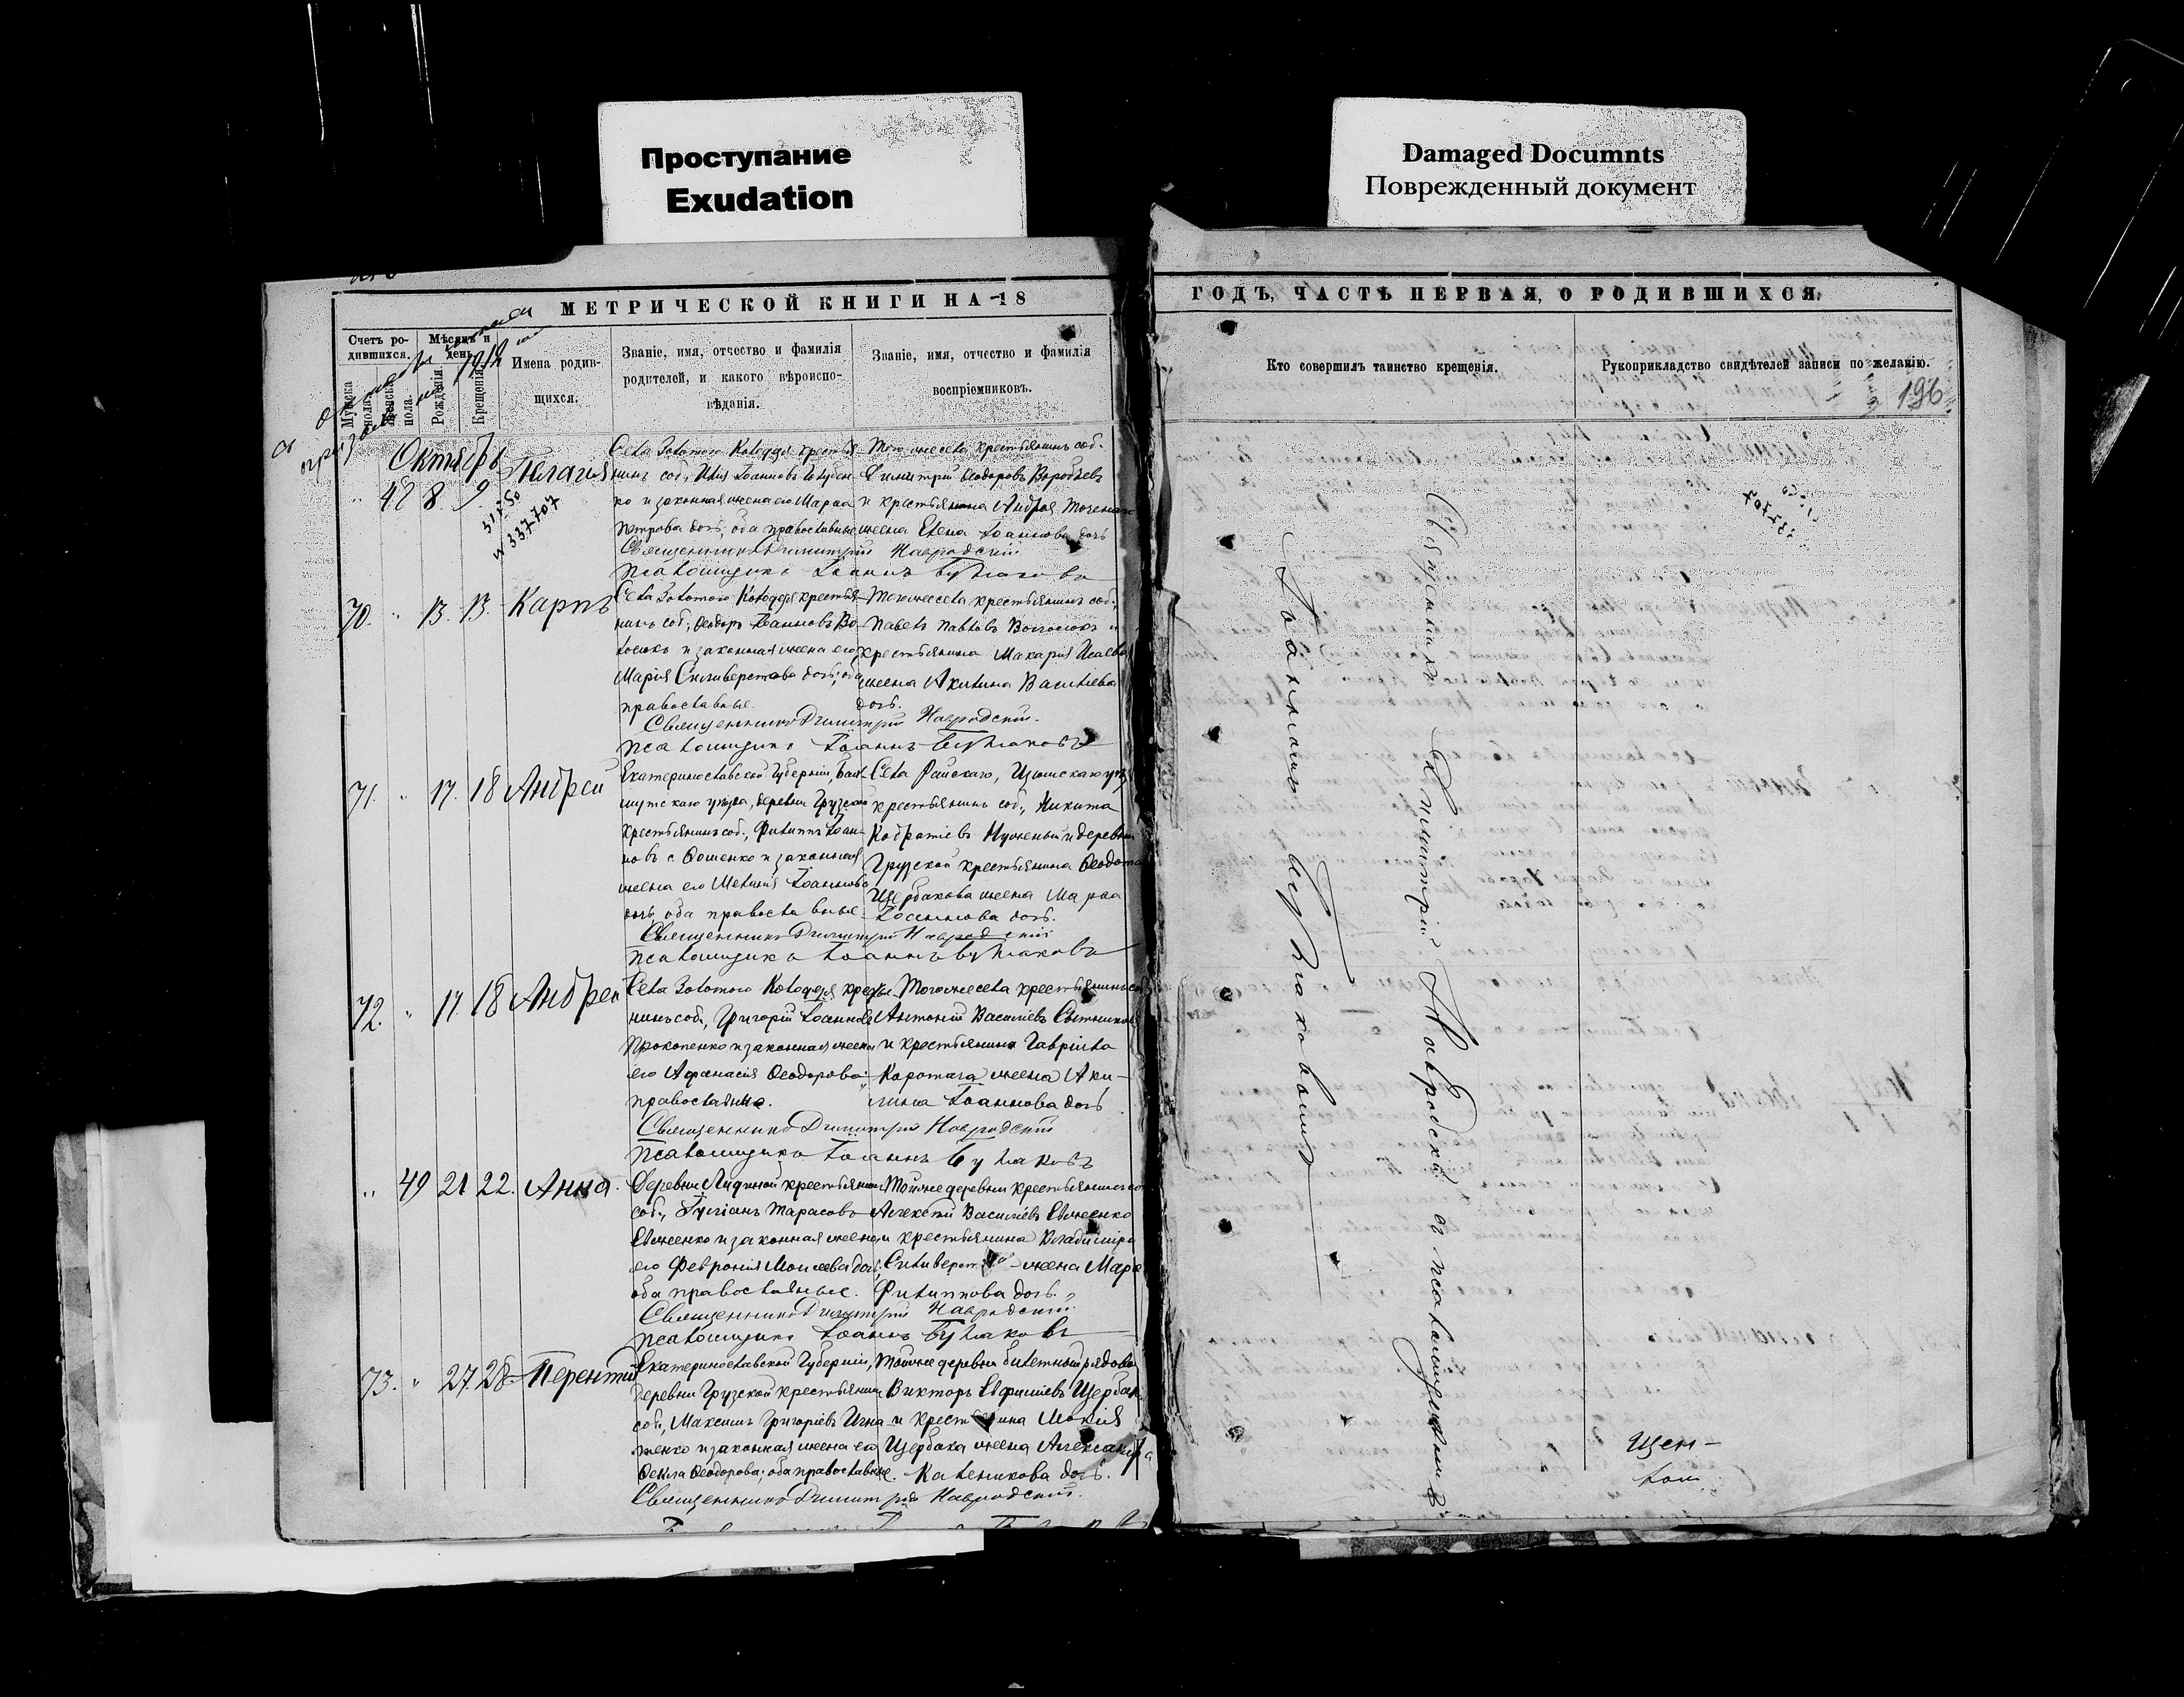 Проступание
Exudation
Damaged Documnts
Поврежденный документ
МЕТРИЧЕСКОЙ КНИГИ НА 18
ГОДЪ, ЧАСТЬ ПЕРВАЯ, О РОДИВШИХСЯ.
Счетъ ро-
дившихся.
Мѣсяцъ и
день.
Мужска
пола.
Женска
пола.
Рожденія.
Крещенія.
Имена родив-
щихся.
Званіе, имя, отчество и фамилія
родителей, и какого вѣроиспо-
вѣданія.
Званіе, имя, отчество и фамилія
воспріемниковъ.
Кто совершилъ таинство крещенія.
Рукоприкладство свидѣтелей записи по желанію.
196
Октябрь
48 8. 9. Пелагія
337707
Села Золотого Колодезя крестья-
нинъ соб., Илія Іоанновъ
ко и законная жена его Марѳа
Петрова дочь; оба православные
Того же села крестьянинъ соб.
Димитрій Ѳеодоровъ Воробьевъ
и крестьянина Андрея
жена Елена Іоаннова дочь
Священникъ Димитрій Навродскій
Псаломщикъ Іоаннъ Булгаковъ
70. " 13. 13. Карпъ
Села Золотого Колодезя крестья-
нинъ соб., Ѳеодоръ Іоанновъ Во-
лосюкъ и законная жена его
Марія Сильверстова дочь; оба
православные.
Того же села крестьянинъ соб.,
Павелъ Павловъ Волосюкъ и
крестьянина Макарія Исаева
жена Акилина Васильева
дочь.
Священникъ Димитрій Навродскій.
Псаломщикъ Іоаннъ Булгаковъ
71. " 17. 18 Андрей
Екатеринославской Губерніи, Бах-
мутскаго уѣзда, деревни Грузской
крестьянинъ соб., Филиппъ Іоан-
новъ и законная
жена его Меланія Іоаннова
дочь, оба православные.
Села Райскаго, Изюмскаго уѣз.
крестьянинъ соб., Никита
и деревни
Грузской крестьянина Ѳеодота
Щербакова жена Марѳа
Іоаннова дочь.
Священникъ Димитрій Навродскій
Псаломщикъ Іоаннъ Булгаковъ
72. " 17. 18 Андрей
Села Золотого Колодезя крестья-
нинъ соб., Григорій Іоанновъ
Прокопенко и законная жена
его Аѳанасія Ѳеодорова
православные.
Того же села крестьянинъ соб.
Антоній Василіевъ
и крестьянина Гавріила
Коротага жена Аки-
лина Іоаннова дочь
Священникъ Димитрій Навродскій
Псаломщикъ Іоаннъ Булгаковъ
" 49 21 22. Анна.
Деревни Лидиной крестьянинъ
соб., Іуліанъ Тарасовъ
Евженко и законная жена
его Февронія Моисеева дочь,
оба православные.
Той же деревни крестьянинъ соб.
Алексѣй Василіевъ Евженко
и крестьянина Владиміра
жена
Филиппова дочь.
Священникъ Димитрій Навродскій.
Псаломщикъ Іоаннъ Булгаковъ
73. " 27. 28 Терентій
Екатеринославской Губерніи,
деревни Грузской крестьянинъ
соб., Максимъ Григоріевъ Игна-
тенко и законная жена его
Ѳекла Ѳеодорова; оба православные.
Той же деревни билетный рядовой
Викторъ Евфиміевъ Щербак
и крестьянина Мокія
Щербака жена Александра
Каленикова дочь.
Священникъ Димитрій Навродскій.
Священникъ Димитрій Навродскій съ псаломщикомъ
Іоанномъ Булгаковымъ